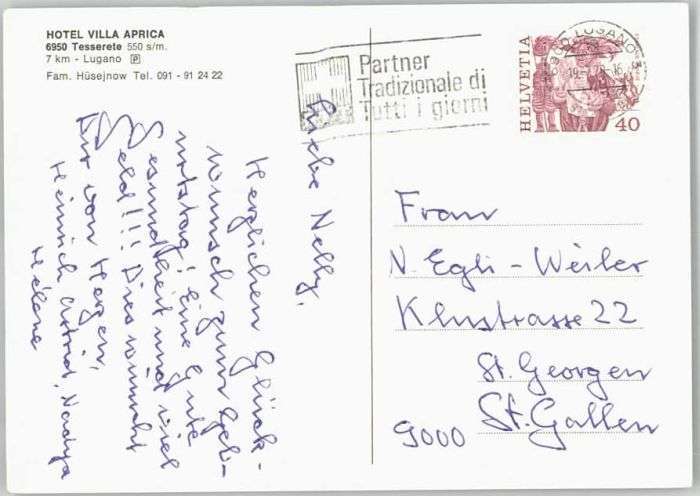 HOTEL VILLA APRICA
6950 Tesserete 550 s/m.
7 km - Lugano P
Fam. Hüsejnow Tel. 091 - 91 24 22
Partner
Tradizionale di
Tutti i giorni
LUGANO
HELVETIA
40
Liebe Nelly,
Herzlichen Glück-
wunsch zum Geb-
urtstag! Eine gute
Gesundheit und viel
Geld!!! Dies wünscht
Dir von Herzen,
Heinrich Astrid, Nadya
Hélène
Frau
N. Egli - Weiler
Klusstrasse 22
St. Georgen
9000 St. Gallen